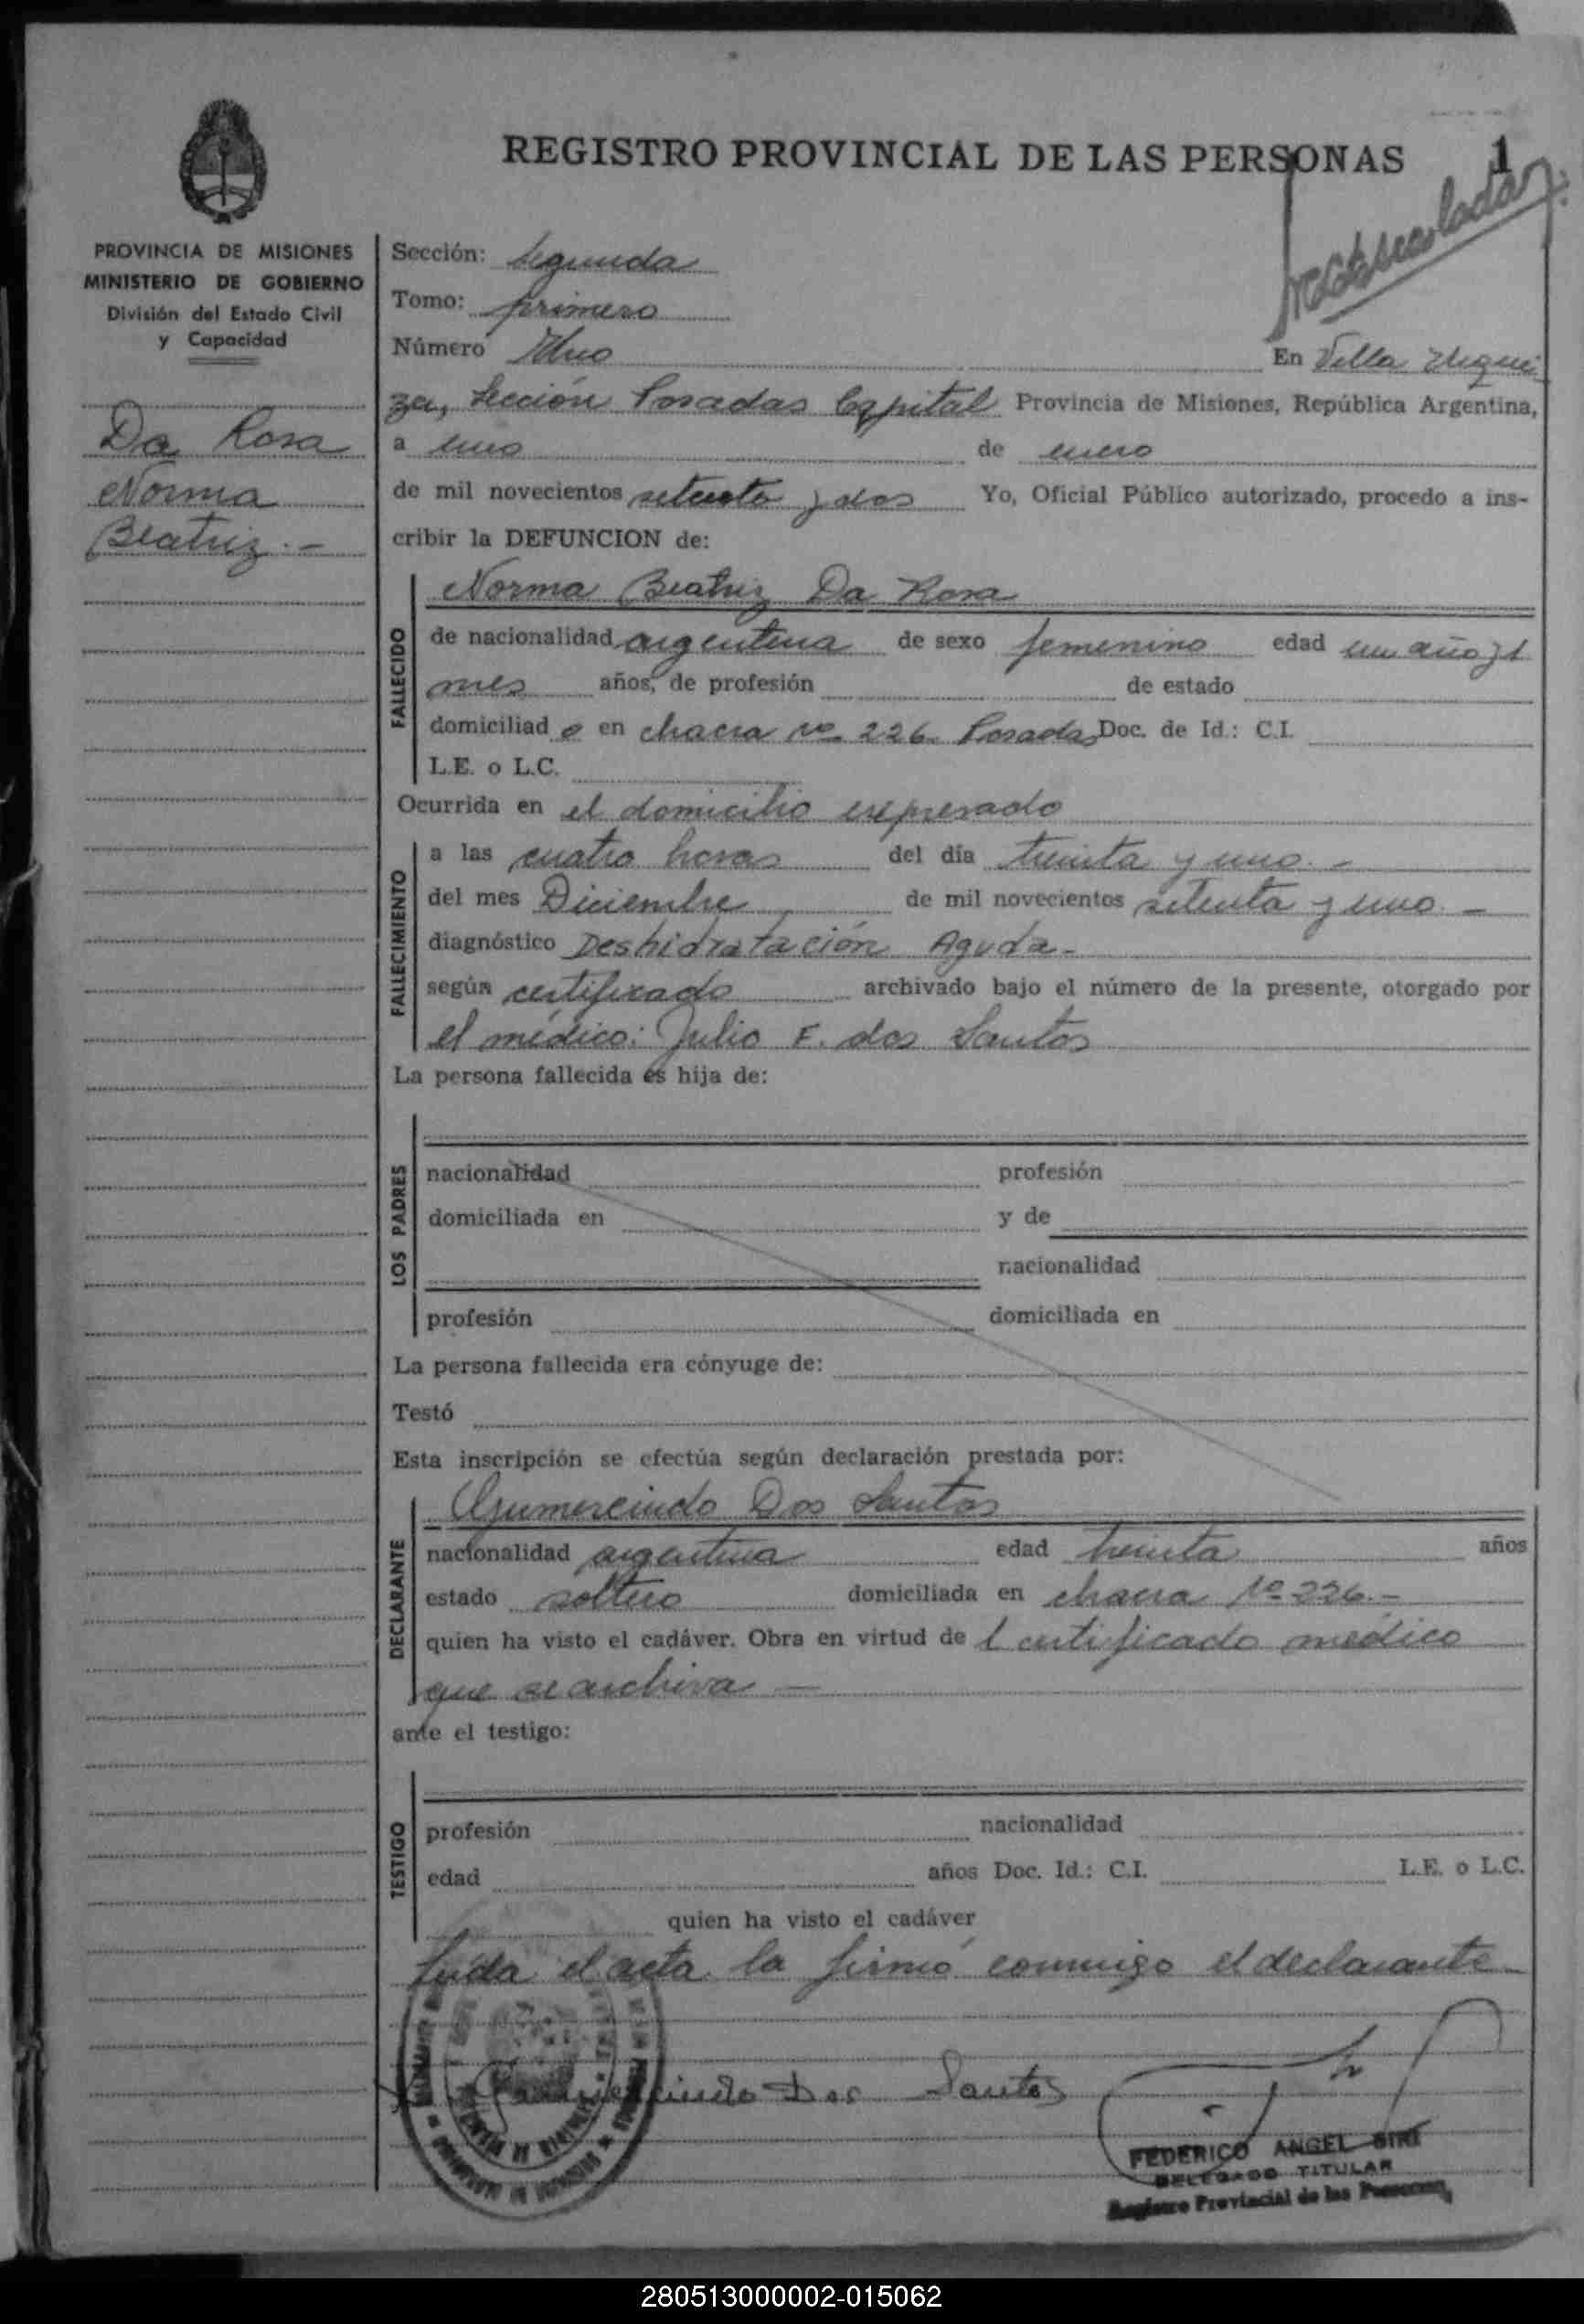 REGISTRO PROVINCIAL DE LAS PERSONAS 1
PROVINCIA DE MISIONES
MINISTERIO DE GOBIERNO
División del Estado Civil
y Capacidad
Da Rosa
Norma
Beatriz.-
Sección: Segunda
Tomo: primero
Número Uno En Villa Urqui
za, Sección Posadas Capital Provincia de Misiones, República Argentina,
a uno de enero
de mil novecientos setenta y dos Yo, Oficial Público autorizado, procedo a ins-
cribir la DEFUNCION de:
FALLECIDO
Norma Beatriz Da Rosa
de nacionalidad argentina de sexo femenino edad un año y 1
mes años, de profesión de estado
domiciliad o en chacra nº 226 Posadas Doc. de Id.: C.I.
L.E. o L.C.
Ocurrida en el domicilio expresado
FALLECIMIENTO
a las cuatro horas del día treinta y uno.-
del mes Diciembre de mil novecientos setenta y uno -
diagnóstico Deshidratación Aguda-
según certificado archivado bajo el número de la presente, otorgado por
el médico: Julio F. dos Santos
La persona fallecida es hija de:
LOS PADRES
nacionalidad profesión
domiciliada en y de
nacionalidad
profesión domiciliada en
La persona fallecida era cónyuge de:
Testó
Esta inscripción se efectúa según declaración prestada por:
DECLARANTE
Gumercindo Dos Santos
nacionalidad argentina edad treinta años
estado soltero domiciliada en chacra Nº 226.-
quien ha visto el cadáver. Obra en virtud de l certificado médico
que se archiva -
ante el testigo:
TESTIGO
profesión nacionalidad
edad años Doc. Id.: C.I. L.E. o L.C.
quien ha visto el cadáver
Leída el acta la firmó conmigo el declarante
Gumercindo Dos Santos
FEDERICO ANGEL SIRI
DELEGADO TITULAR
Registro Provincial de las Personas
280513000002-015062